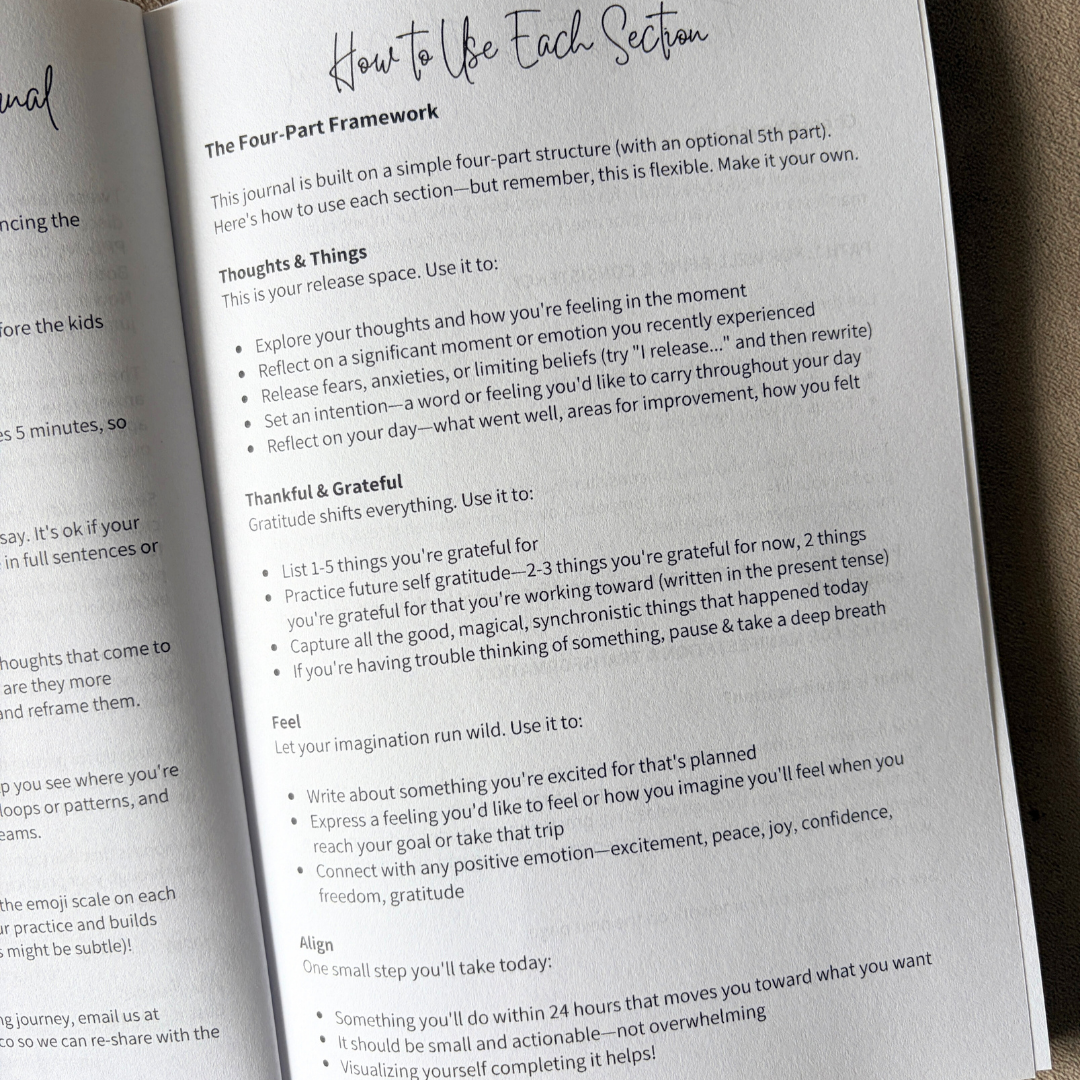 nal
ncing the
fore the kids
es 5 minutes, so
say. It's ok if your
in full sentences or
houghts that come to
are they more
and reframe them.
p you see where you're
loops or patterns, and
eams.
the emoji scale on each
ur practice and builds
s might be subtle)!
ng journey, email us at
co so we can re-share with the
How to Use Each Section
The Four-Part Framework
This journal is built on a simple four-part structure (with an optional 5th part).
Here's how to use each section—but remember, this is flexible. Make it your own.
Thoughts & Things
This is your release space. Use it to:
• Explore your thoughts and how you're feeling in the moment
• Reflect on a significant moment or emotion you recently experienced
• Release fears, anxieties, or limiting beliefs (try "I release..." and then rewrite)
• Set an intention—a word or feeling you'd like to carry throughout your day
• Reflect on your day—what went well, areas for improvement, how you felt
Thankful & Grateful
Gratitude shifts everything. Use it to:
• List 1-5 things you're grateful for
• Practice future self gratitude—2-3 things you're grateful for now, 2 things
you're grateful for that you're working toward (written in the present tense)
• Capture all the good, magical, synchronistic things that happened today
• If you're having trouble thinking of something, pause & take a deep breath
Feel
Let your imagination run wild. Use it to:
• Write about something you're excited for that's planned
• Express a feeling you'd like to feel or how you imagine you'll feel when you
reach your goal or take that trip
• Connect with any positive emotion—excitement, peace, joy, confidence,
freedom, gratitude
Align
One small step you'll take today:
• Something you'll do within 24 hours that moves you toward what you want
• It should be small and actionable—not overwhelming
• Visualizing yourself completing it helps!